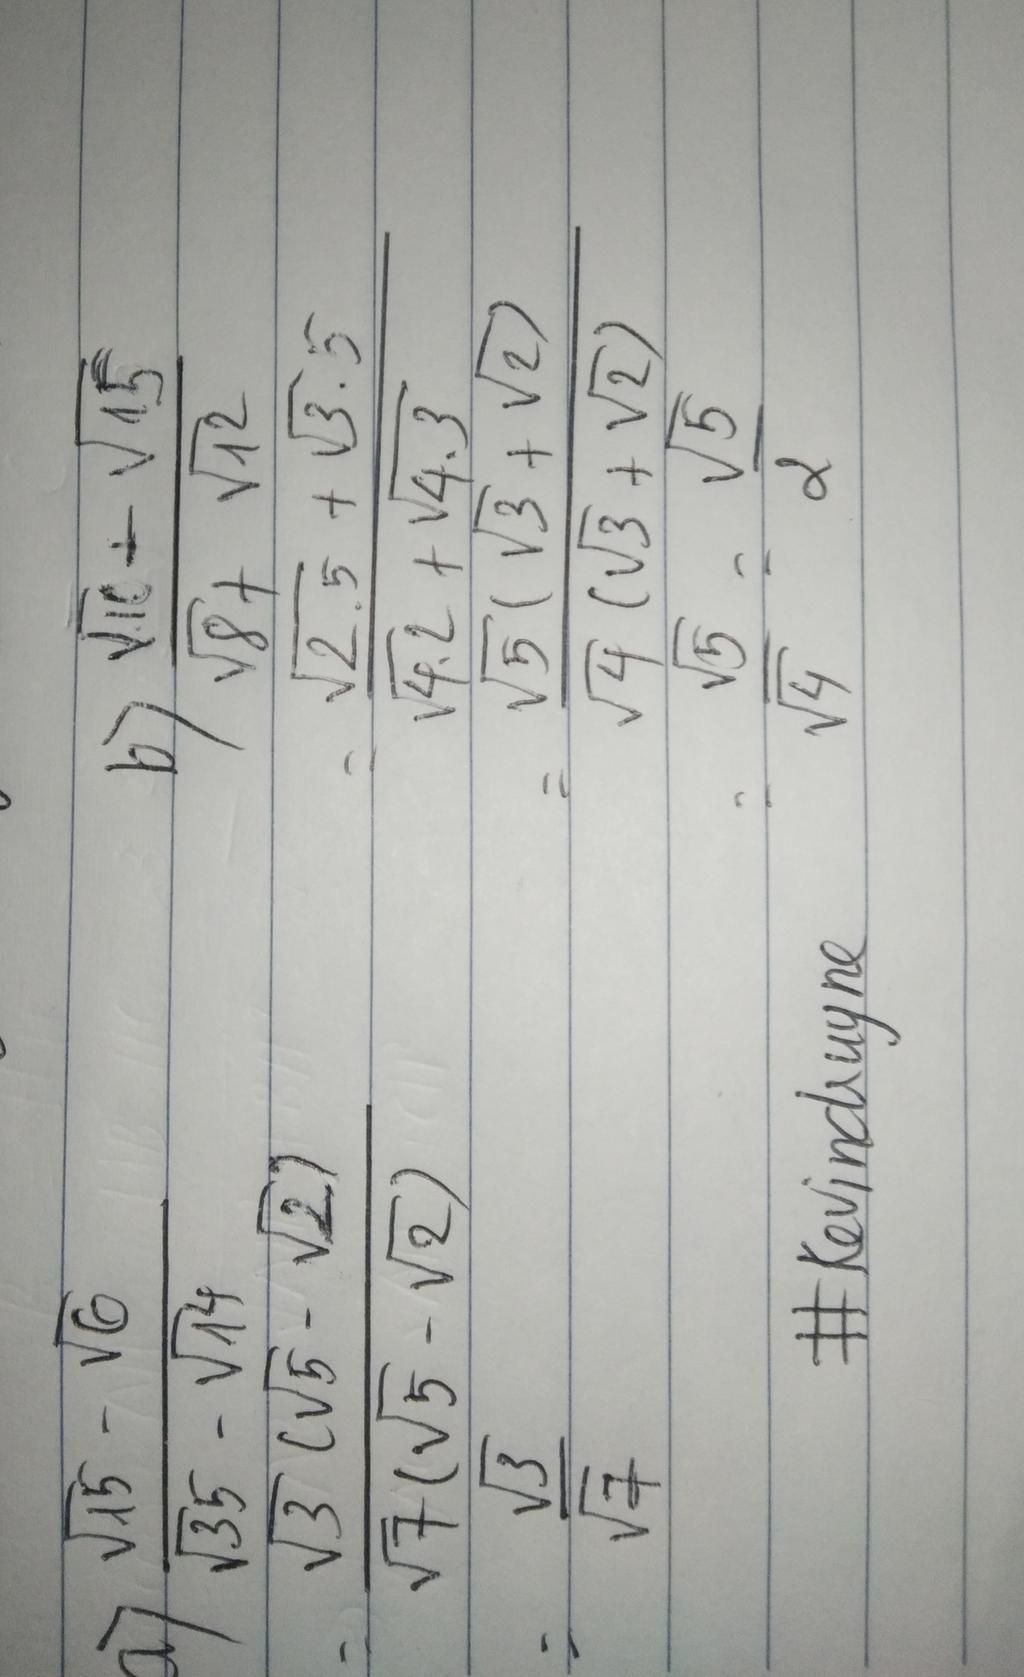 a) √15 - √6
√35 - √14
= √3 (√5 - √2)
√7 (√5 - √2)
= √3
√7
b) √10 + √15
√8 + √12
= √2.5 + √3.5
√4.2 + √4.3
= √5 (√3 + √2)
√4 (√3 + √2)
= √5 = √5
√4 2
#Kevindruyne